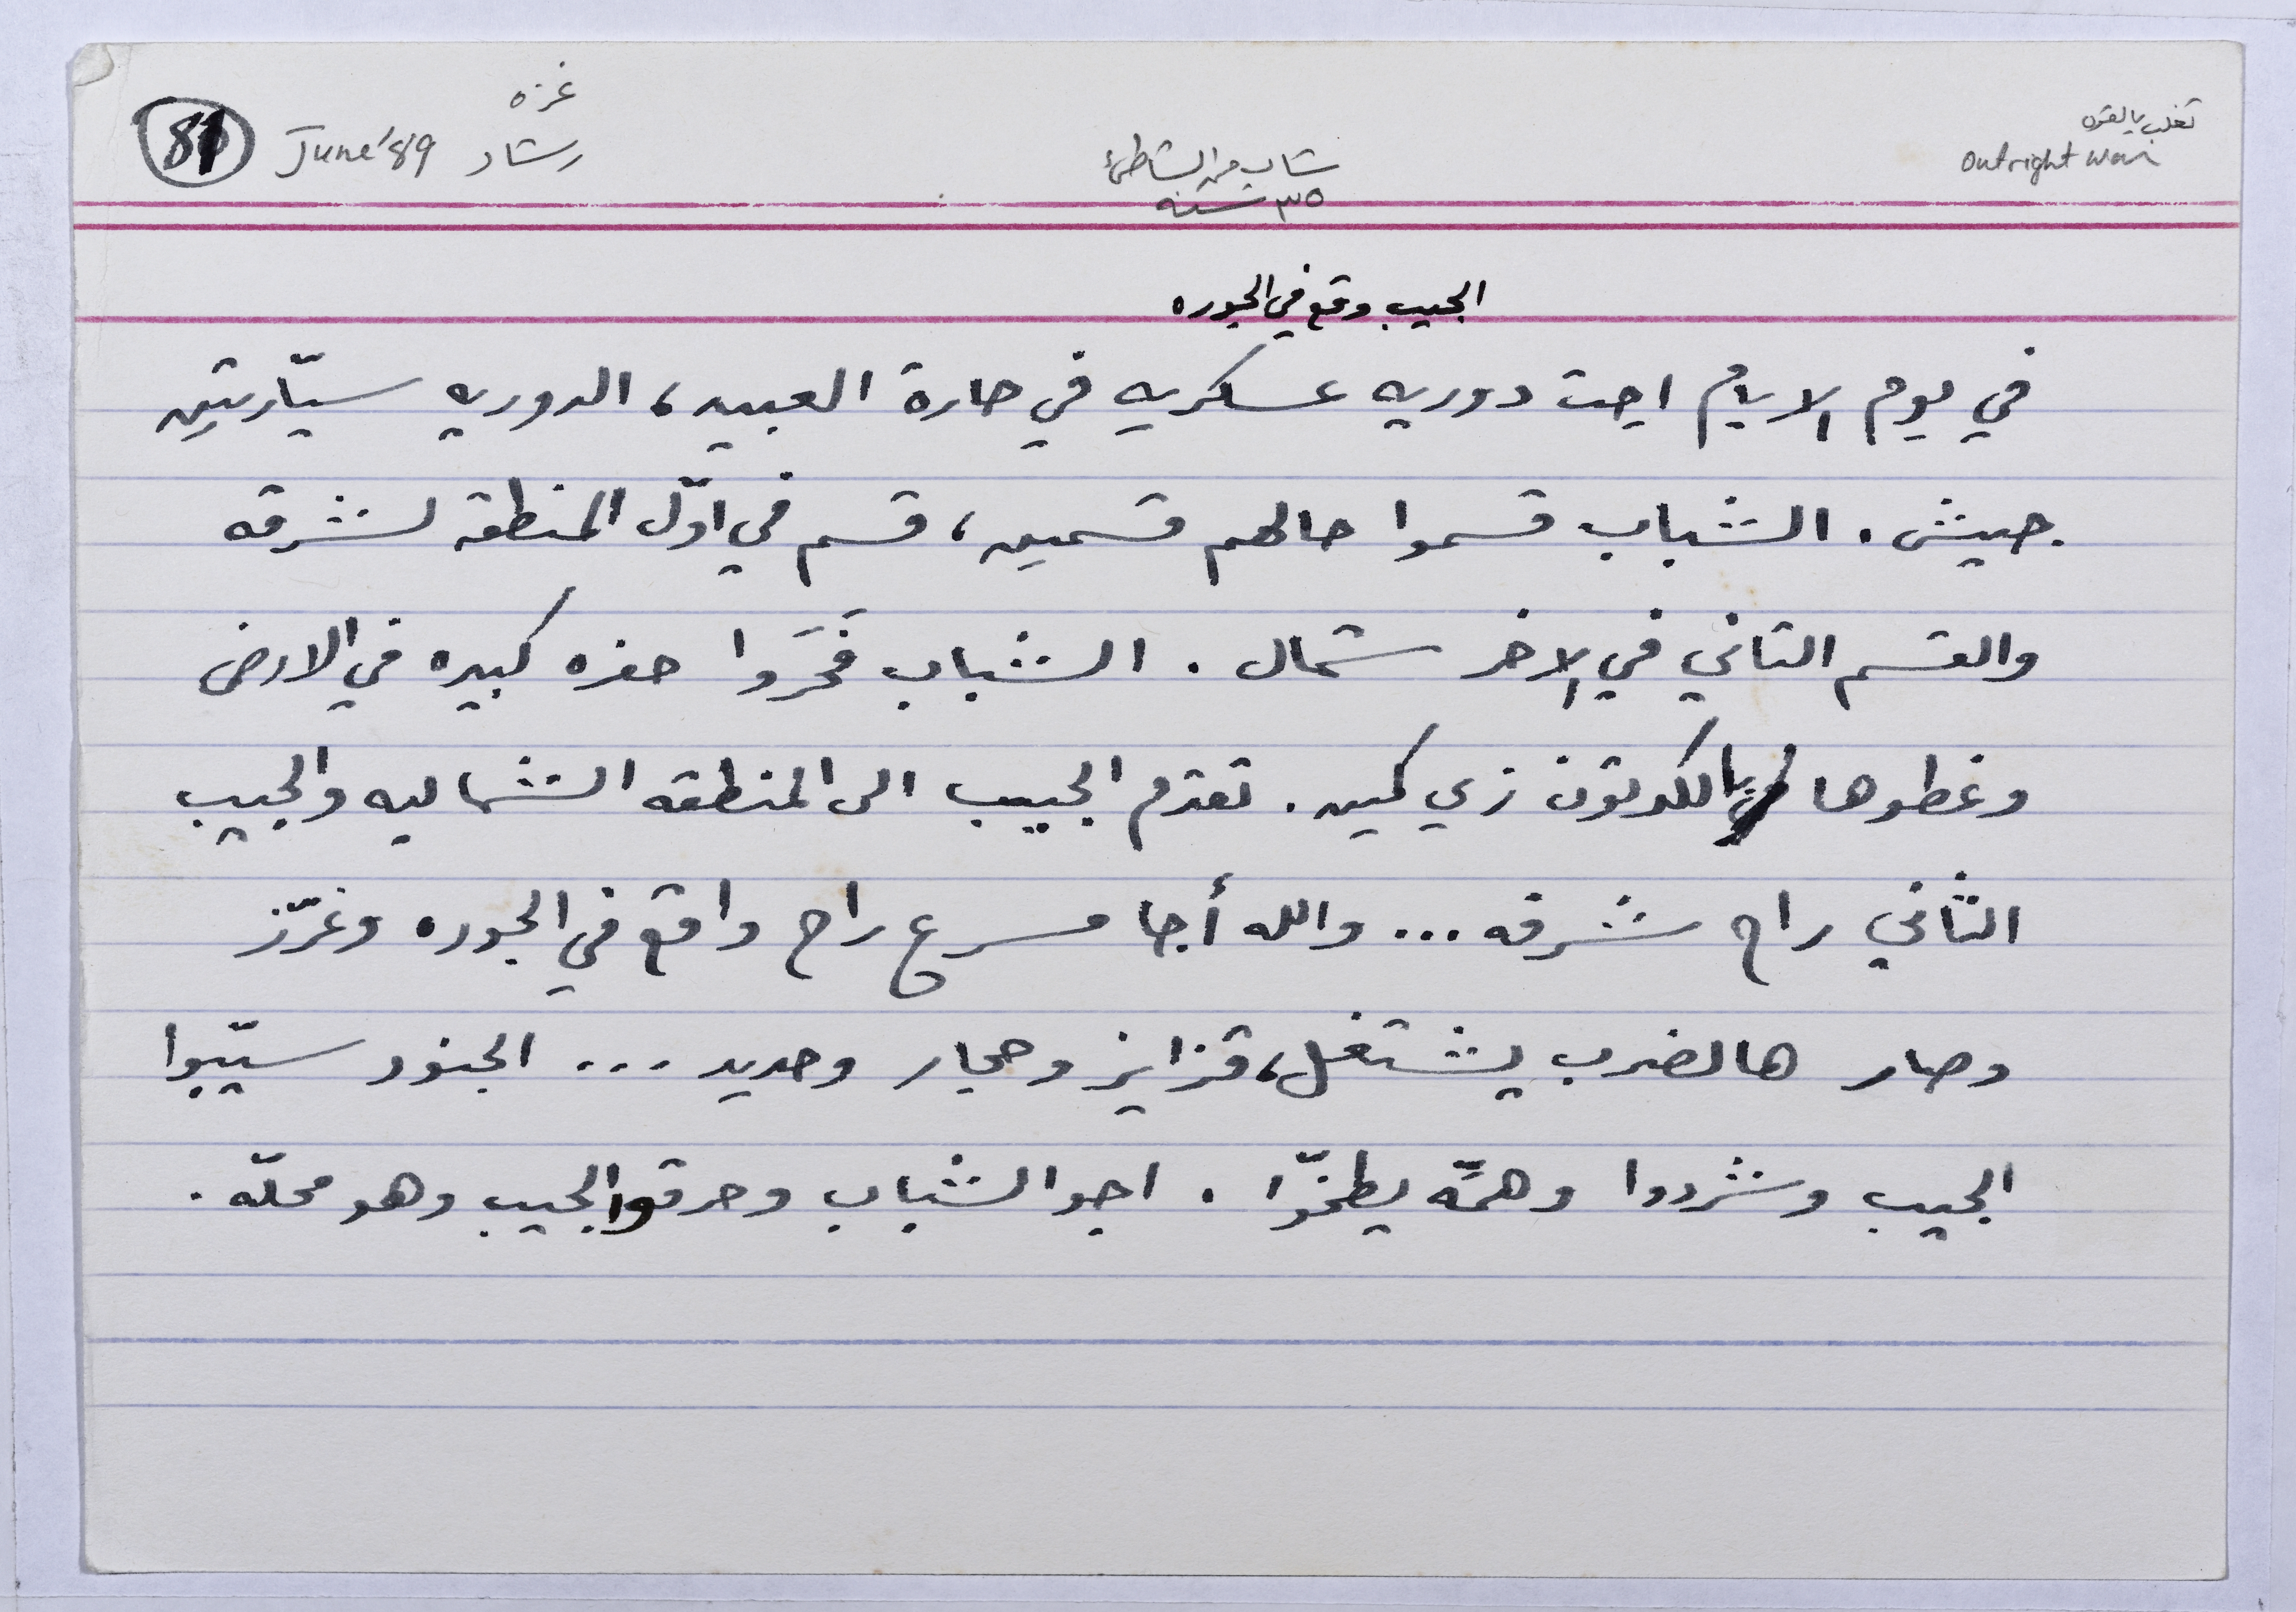 تغلب بالقوه
outright war
شاب من الشاطئ
٣٥ سنه
غزه
رشاد
June '89
81
الجيب وقع في الجوره
في يوم الايام اجت دوريه عسكريه في حارة العبيد، الدوريه سيّارتين
جيش. الشباب قسموا حالهم قسمين، قسم في اوّل المنطقه لشرقه
والقسم التاني في الاخر شمال. الشباب فَحَروا حفره كبيره في الارض
وغطوها بالكرتون زي كمين. تقدم الجيب الى المنطقه الشماليه والجيب
الثاني راح شرقه... والله أجا مسرع راح واقع في الجوره وغرّز
وصار هالضرب يشتغل، قزايز وحجار وحديد... الجنود سيّبوا
الجيب وشردوا وهمّه يطخّوا. اجو الشباب وحرقوا الجيب وهو محلّه.